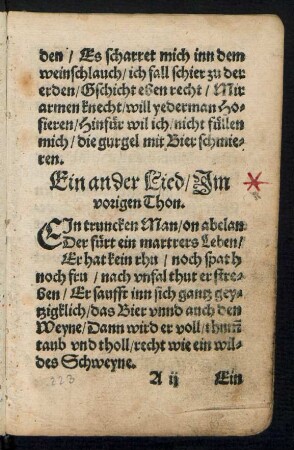 den / Es scharret mich inn dem
weinschlauch / ich fall schier zu der
erden / Gschicht eßen recht / Mir
armen knecht / will yederman Ho-
fieren / Hinfür wil ich / nicht füllen
mich / die gurgel mir Bier schmie-
ren.
Ein ander Lied / Im
vorigen Thon.
EIn truncken Man / on abelan
Der fürt ein martrers Leben /
Er hat kein rhu / noch spat h
noch fru / nach vnfal thut er stre-
ben / Er saufft inn sich gantz gey-
tzigklich / das Bier vnnd auch den
Weyne / Dann wird er voll / thum̃
taub vnd tholl / recht wie ein wil-
des Schweyne.
223 A ij Ein